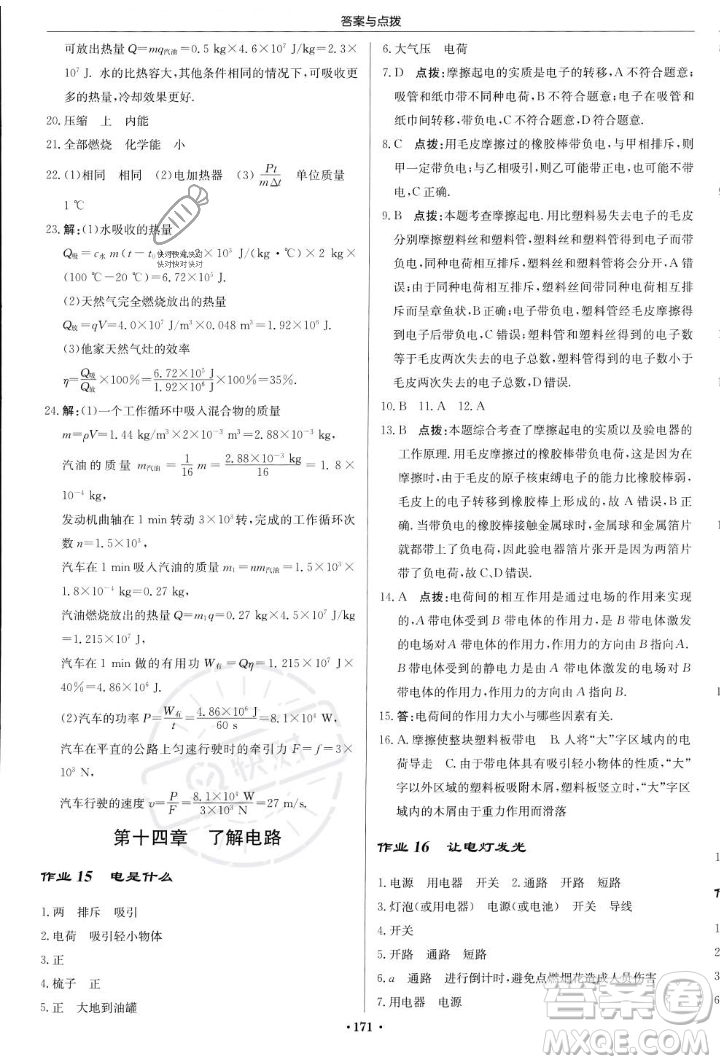 答案与点拨
可放出热量 Q=mq汽油=0.5 kg×4.6×10⁷ J/kg=2.3×
10⁷ J. 水的比热容大,其他条件相同的情况下,可吸收更
多的热量,冷却效果更好.
20. 压缩 上 内能
21. 全部燃烧 化学能 小
22. (1)相同 相同 (2)电加热器 (3) Pt/mΔt 单位质量
1 ℃
23. 解:(1)水吸收的热量
Q吸=c水 m(t-t 快对快对快对
快对快对快对
×10³ J/(kg·℃)×2 kg×
(100 ℃-20 ℃)=6.72×10⁵ J
(2)天然气完全燃烧放出的热量
Q放=qV=4.0×10⁷ J/m³×0.048 m³=1.92×10⁶ J
(3)他家天然气灶的效率
η=Q吸/Q放×100%=6.72×10⁵ J/1.92×10⁶ J×100%=35%
24. 解:(1)一个工作循环中吸入混合物的质量
m=ρV=1.44 kg/m³×2×10⁻³ m³=2.88×10⁻³ kg,
汽油的质量 m汽油=1/16 m=2.88×10⁻³ kg/16=1.8×
10⁻⁴ kg,
发动机曲轴在 1 min 转动 3×10³转,完成的工作循环次
数 n=1.5×10³,
汽车在 1 min 吸入汽油的质量 m₁=nm汽油=1.5×10³×
1.8×10⁻⁴ kg=0.27 kg,
汽油燃烧放出的热量 Q=m₁q=0.27 kg×4.5×10⁷ J/kg
=1.215×10⁷ J,
汽车在 1 min 做的有用功 W有=Qη=1.215×10⁷ J×
40%=4.86×10⁶ J.
(2)汽车的功率 P=W有/t=4.86×10⁶ J/60 s=8.1×10⁴ W,
汽车在平直的公路上匀速行驶时的牵引力 F=f=3×
10³ N,
汽车行驶的速度 v=P/F=8.1×10⁴ W/3×10³ N=27 m/s.
第十四章 了解电路
作业 15 电是什么
1. 两 排斥 吸引
2. 电荷 吸引轻小物体
3. 正
4. 梳子 正
5. 正 大地到油罐
6. 大气压 电荷
7. D 点拨:摩擦起电的实质是电子的转移,A 不符合题意;
吸管和纸巾带不同种电荷,B 不符合题意;电子在吸管和
纸巾间转移,C 不符合题意.
8. C 点拨:用毛皮摩擦过的橡胶棒带负电,与甲排斥,所以
则甲一定带负电;乙与甲吸引,则乙可能带正电,也可能不带电,
C 正确.
9. B 点拨:本题考查摩擦起电.用比塑料易失去电子的毛皮
分别摩擦塑料丝和塑料管,塑料丝和塑料管都带负电,
由于同种电荷相互排斥,塑料丝和塑料管将会分开,A 错
误;由于同种电荷相互排斥,塑料丝间带同种电荷相互排
斥而呈章鱼状,B 正确;毛皮先后经过摩擦得到的电子
后带负电荷,C 错误;塑料管和塑料丝得到的电子总数
等于毛皮两次失去的电子总数,电子总数不小于
毛皮两次失去的电子总数,D 错误.
10. B 11. A 12. A
13. B 点拨:本题综合考查了摩擦起电的实质以及验电器的
工作原理.用毛皮摩擦过的橡胶棒带负电荷,是因为在
摩擦时,毛皮的原子核束缚电子的能力比橡胶棒弱,
毛皮的电子转移到橡胶棒上的原因,故 A 错误,B 正
确.当带负电的橡胶棒接触金属球时,金属球和金属箔片
上都带上了负电荷,因此验电器箔片张开是因为箔片
带了负电荷,故 C、D 错误.
14. A 点拨:电荷间的相互作用是通过电场的作用来实现
的,A 带电体受到 B 带电体的作用力,是 B 带电体激发
的电场对 A 带电体施加的力的作用,由此可以看出 B 带
电体受到的静电力是由 A 带电体激发的电场对 B 带电
体施加的.
15. 答:电荷间的作用力大小与哪些因素有关.
16. A. 摩擦使整块塑料板带电 B. 人将“大”字区域内的电
荷导走 C. 由于带电体能够吸引轻小物体,因此“大”字
以外区域的塑料板吸附木屑,塑料板竖立时,“大”字区
域内的木屑由于重力作用而滑落
作业 16 让电灯发光
1. 电源 用电器 开关 2. 通路 开路 短路
3. 灯泡(或用电器) 电源(或电池) 开关 导线
4. 开关
5. 开路 通路 短路
6. a 通路 进行倒计时,避免点燃烟花造成人员伤害
7. 用电器 电源
· 171 ·
快对
答案圈
MXQE.COM